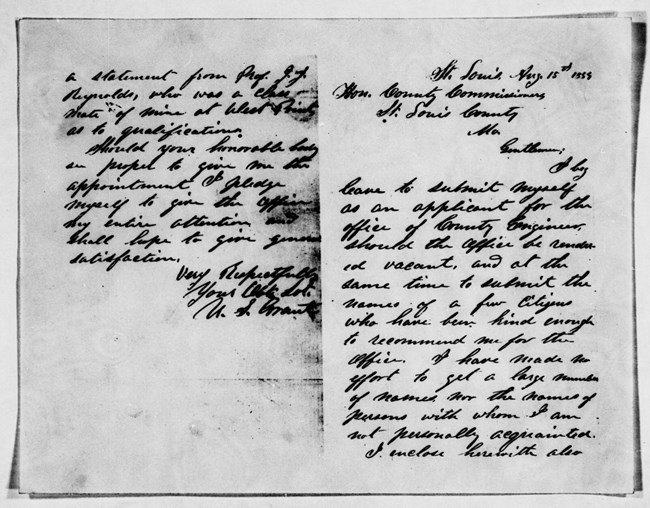 St. Louis, Aug. 15th 1859
Hon. County Commissioners
St. Louis County
Mo.
Gentlemen;
I beg
leave to submit myself
as an applicant for the
office of County Engineer,
should the office be render-
ed vacant, and at the
same time to submit the
names of a few citizens
who have been kind enough
to recommend me for the
office. I have made no
effort to get a large number
of names, nor the names of
persons with whom I am
not personally acquainted.
I enclose herewith also
a statement from Prof. J. J.
Reynolds, who was a class
mate of mine at West Point,
as to qualifications.
Should your honorable body
see proper to give me the
appointment I pledge
myself to give the office
my entire attention and
shall hope to give general
satisfaction.
Very Respectfully
Your Obt. Svt.
U. S. Grant